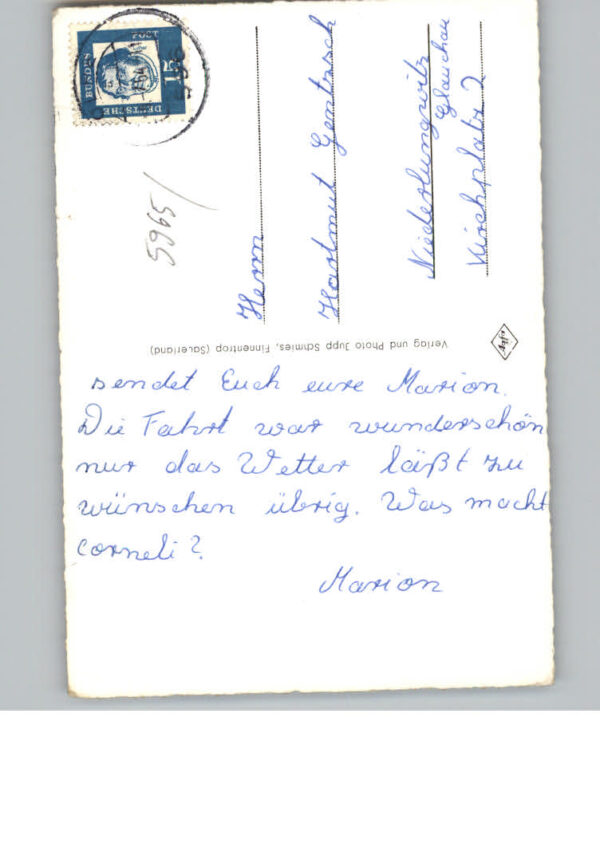 sendet Euch eure Marion.
Die Fahrt war wunderschön
nur das Wetter läßt zu
wünschen übrig. Was macht
Corneli?
Marion
Herrn
Hartmut Gentzsch
Niederlungwitz
Glauchau
Kirchplatz 2
Verlag und Photo Jupp Schmies, Finnentrop (Sauerland)
5965/
DEUTSCHE
BUNDES
POST
15